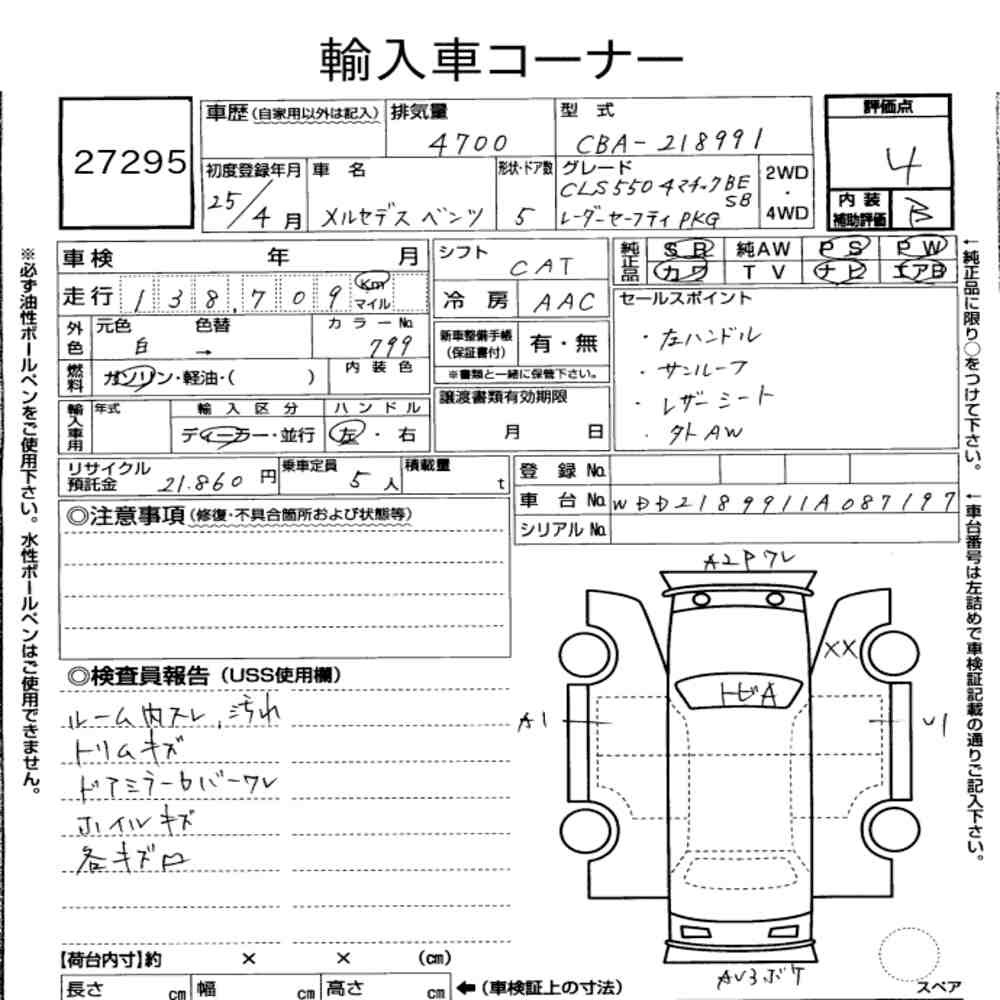 輸入車コーナー
27295
車歴(自家用以外は記入)
排気量
4700
型 式
CBA-218991
評価点
4
内装補助評価
B
初度登録年月
25/4月
車 名
メルセデス ベンツ
形状・ドア数
5
グレード
CLS550 4マチックBE
SB
レーダーセーフティ PKG
2WD
・
4WD
車検 年 月
走行 138,709 Km
マイル
外色
元色 色替
白 →
カラーNo.
799
燃料
ガソリン・軽油・( )
内装色
輸入車用
年式
輸入区分
ディーラー・並行
ハンドル
左・右
シフト
CAT
冷房
AAC
新車整備手帳
(保証書付)
有・無
※書類と一緒に保管下さい。
譲渡書類有効期限
月 日
純正品
SR 純AW PS PW
カワ TV ナビ エアB
セールスポイント
・左ハンドル
・サンルーフ
・レザーシート
・外AW
リサイクル預託金
21.860円
乗車定員
5人
積載量
t
登録No.
車台No. WDD2189911A087197
シリアルNo.
◎注意事項(修復・不具合箇所および状態等)
◎検査員報告(USS使用欄)
ルーム内スレ、汚れ
トリムキズ
ドアミラーカバーワレ
ホイルキズ
各キズ
A2Pワレ
XX
トビA
A1
U1
AU3ボケ
スペア
【荷台内寸】約 × × (cm)
長さ cm 幅 cm 高さ cm
←(車検証上の寸法)
※必ず油性ボールペンをご使用下さい。水性ボールペンはご使用できません。
←純正品に限り○をつけて下さい。
←車台番号は左詰めで車検証記載の通りご記入下さい。